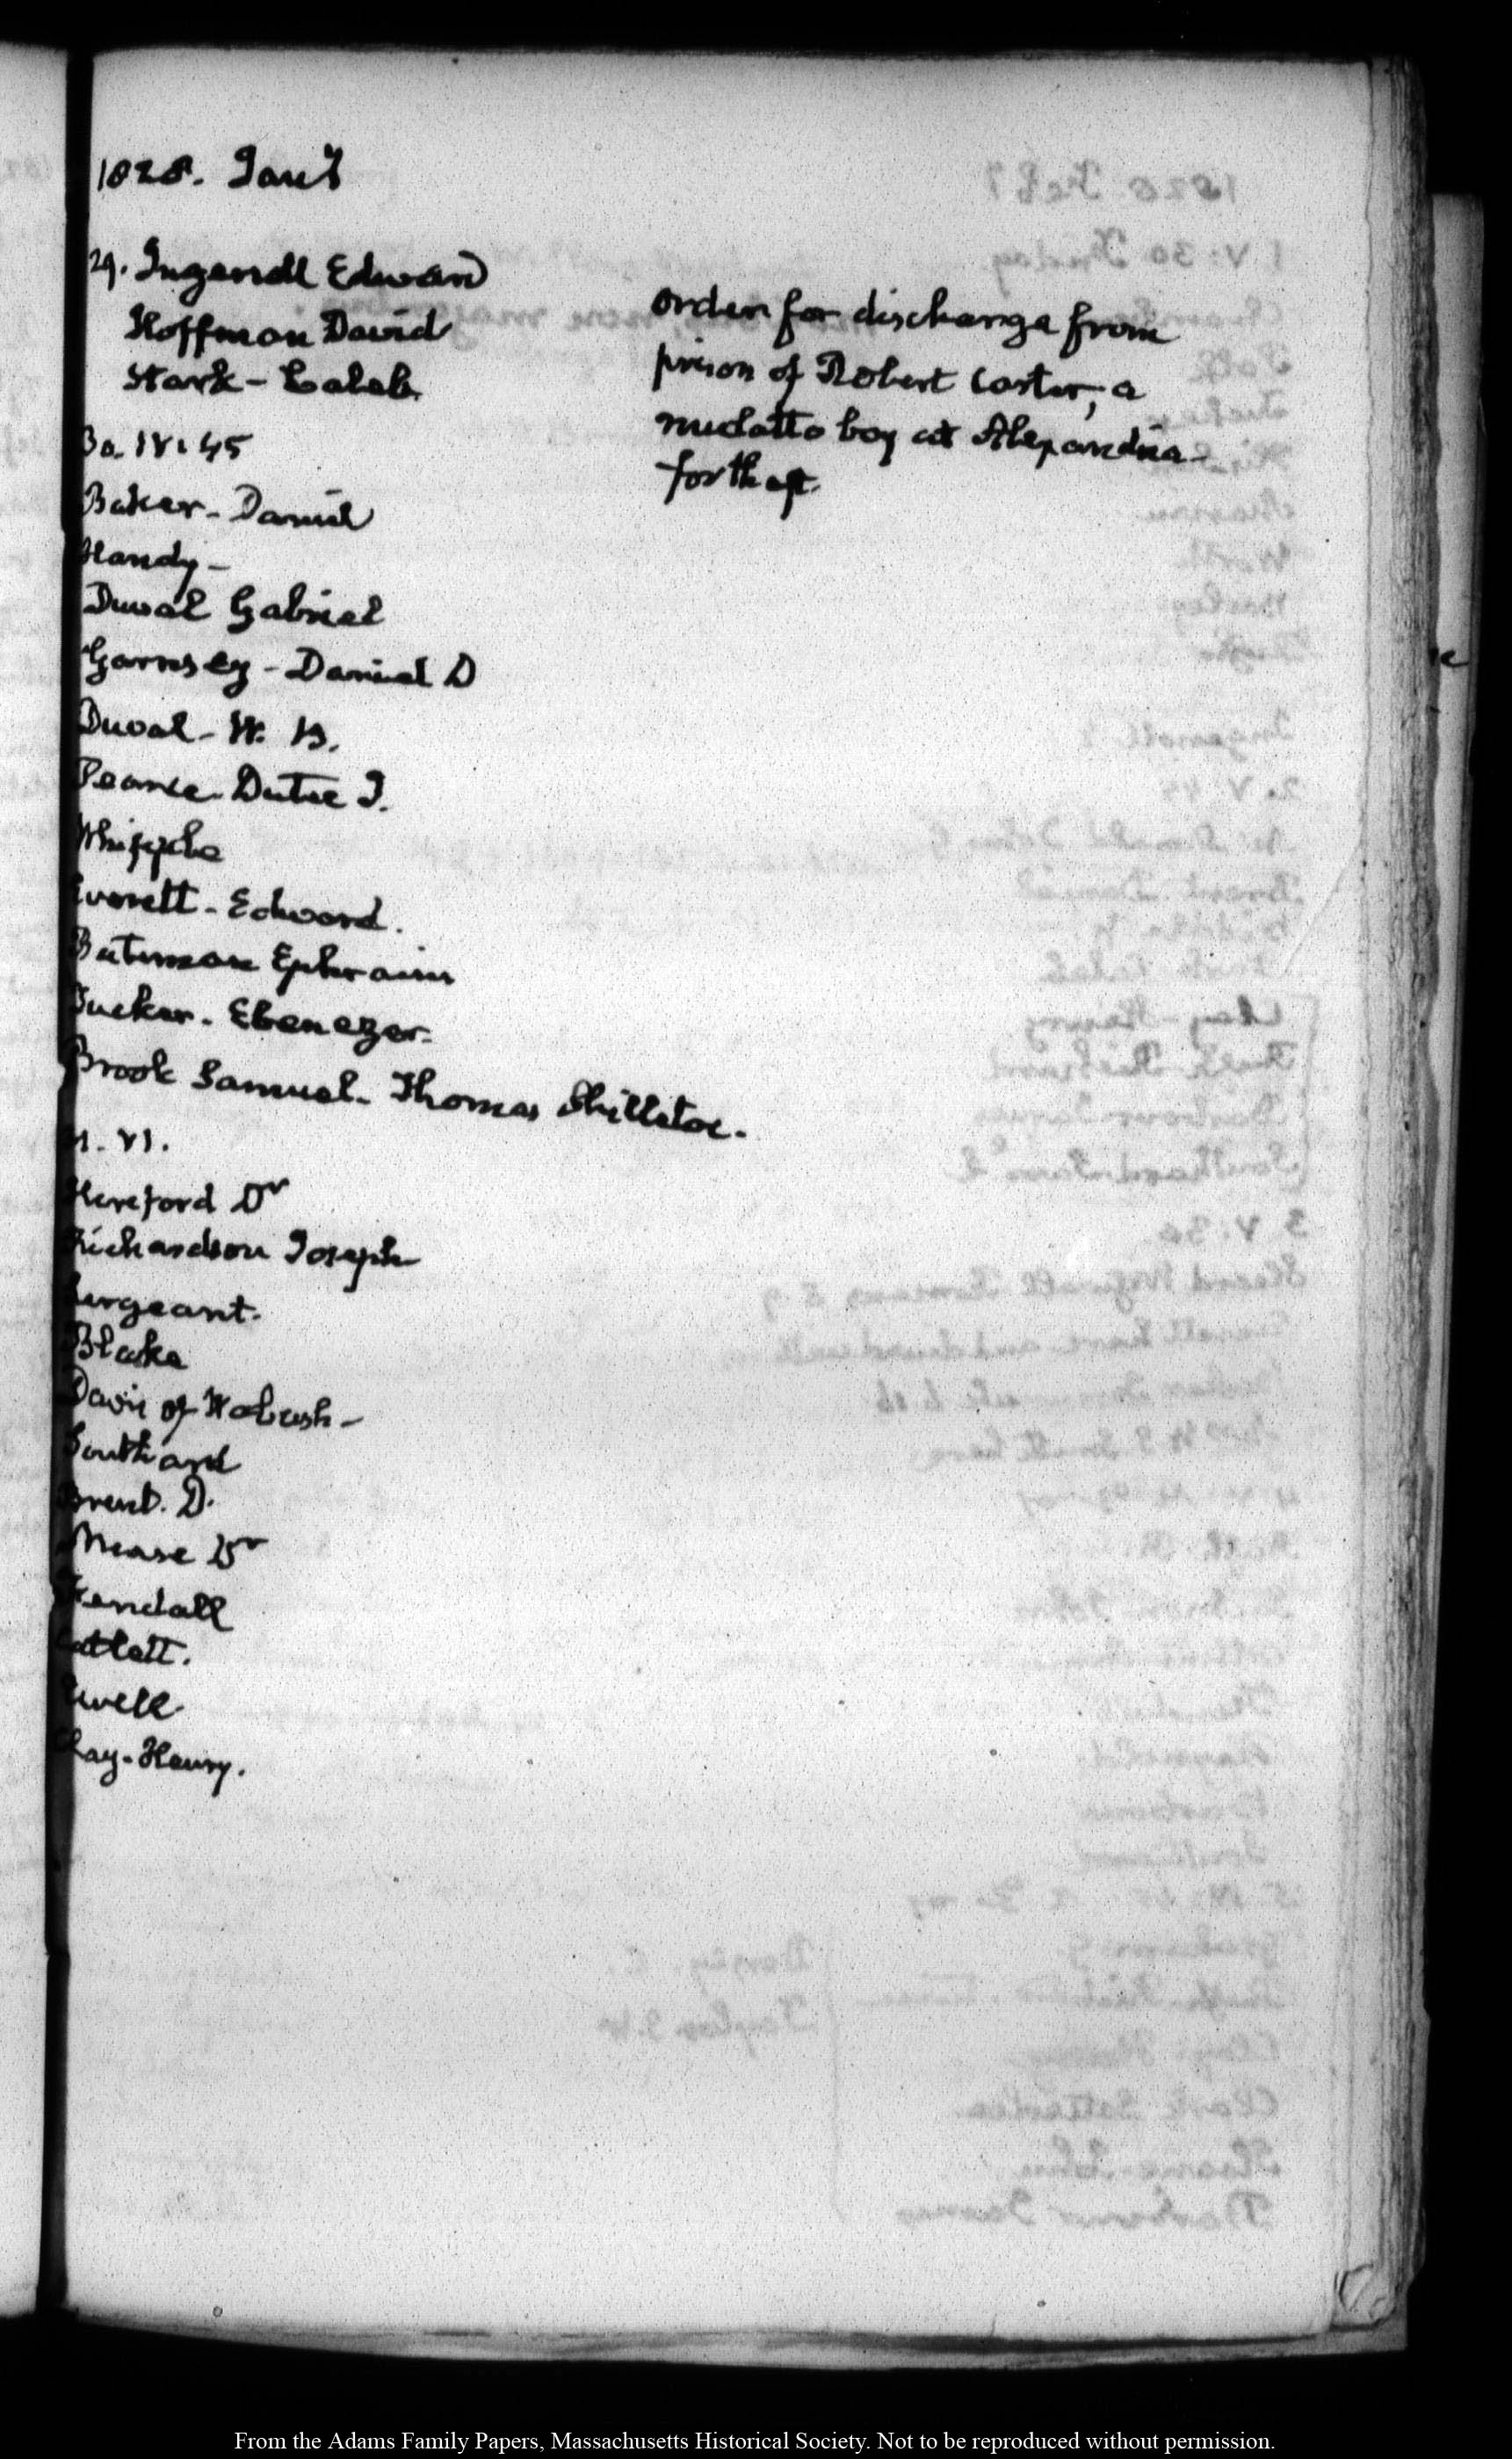 1828. Jany
29. Ingersoll Edward
Hoffman David
Stark - Caleb
30. IV: 45
Baker - Daniel
Handy -
Duval Gabriel
Garnsey - Daniel D
Duval - W. P.
Pearce. Dutee J.
Whipple
Everett - Edward.
Bateman Ephraim
Tucker. Ebenezer.
Brook Samuel - Thomas Shillitoe.
31. VI.
Hereford Dr
Richardson Joseph
Sergeant.
Blake
Davis of Wabash -
Southard
Brent. D.
Mease Dr
Kendall
Catlett.
Ewell.
Clay - Henry.
order for discharge from
prison of Robert Carter, a
mulatto boy at Alexandria -
for theft.
From the Adams Family Papers, Massachusetts Historical Society. Not to be reproduced without permission.